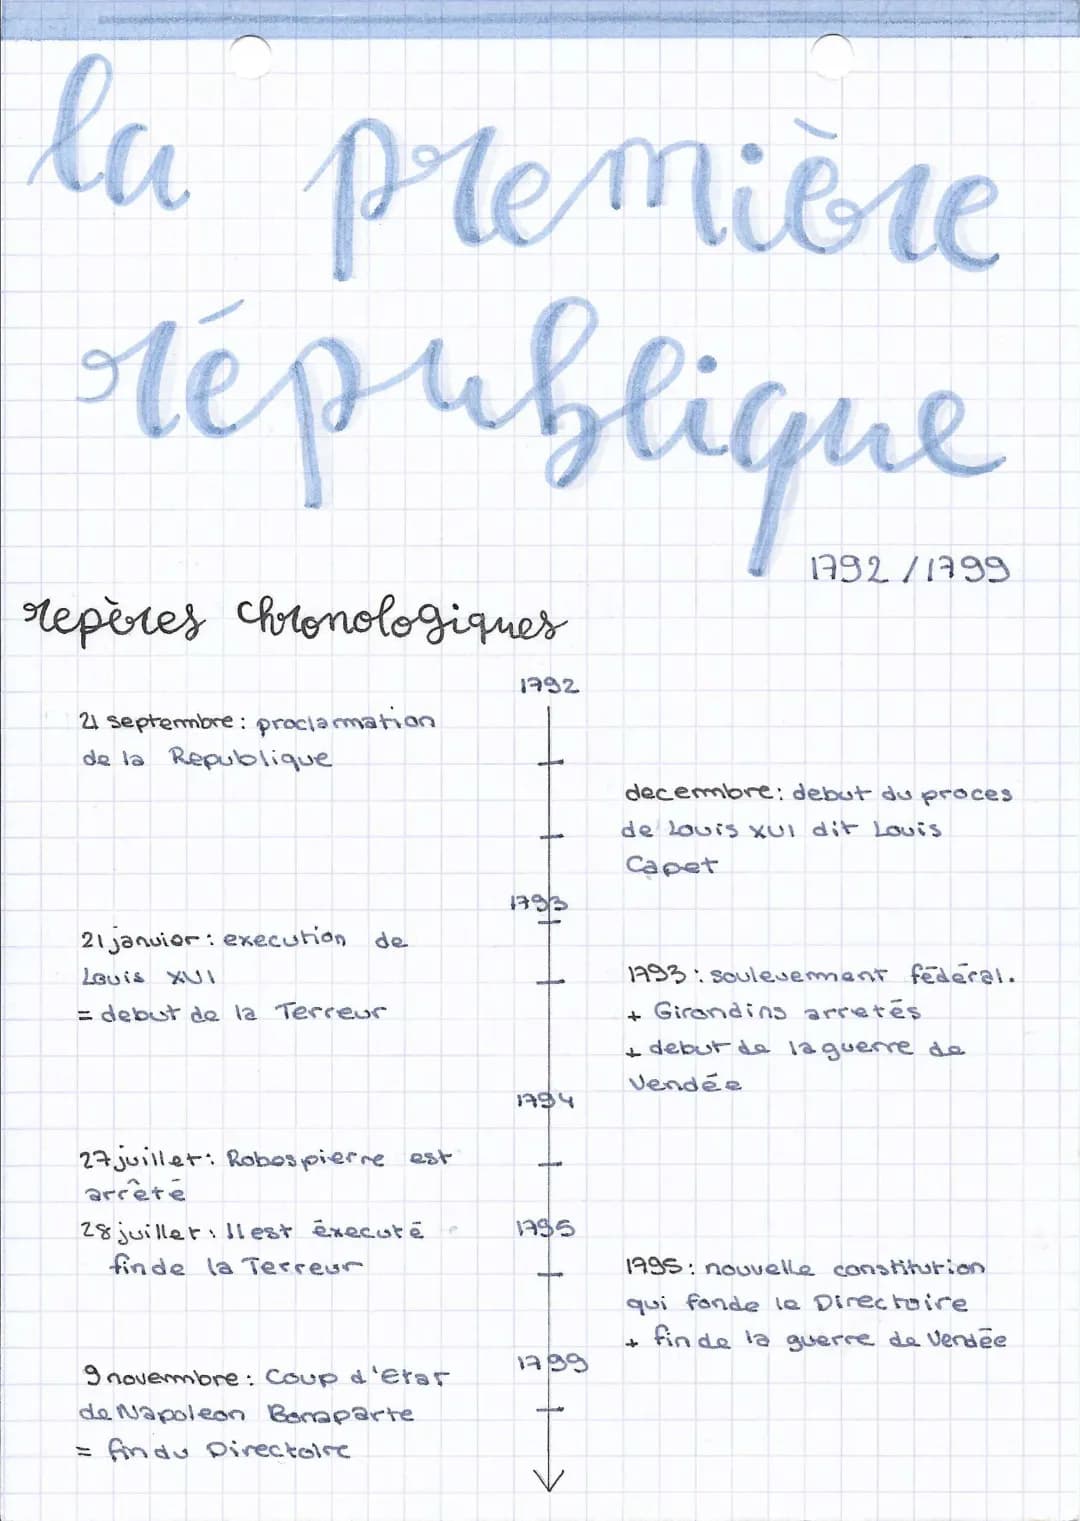 la première
république
1792 / 1799
repères chronologiques
1792
21 septembre : proclamation
de la Republique
decembre : debut du proces
de Louis XVI dit Louis
Capet
1793
21 janvier : execution de
Louis XVI
= debut de la Terreur
1793 : soulevement fédéral.
+ Girondins arretés
+ debut de la guerre de
Vendée
1794
27 juillet : Robospierre est
arrêté
28 juillet : Il est éxecuté
fin de la Terreur
1795
1795 : nouvelle constitution
qui fonde le Directoire
+ fin de la guerre de Vendée
1799
9 novembre : Coup d'Etat
de Napoleon Bonaparte
= fin du Directoire